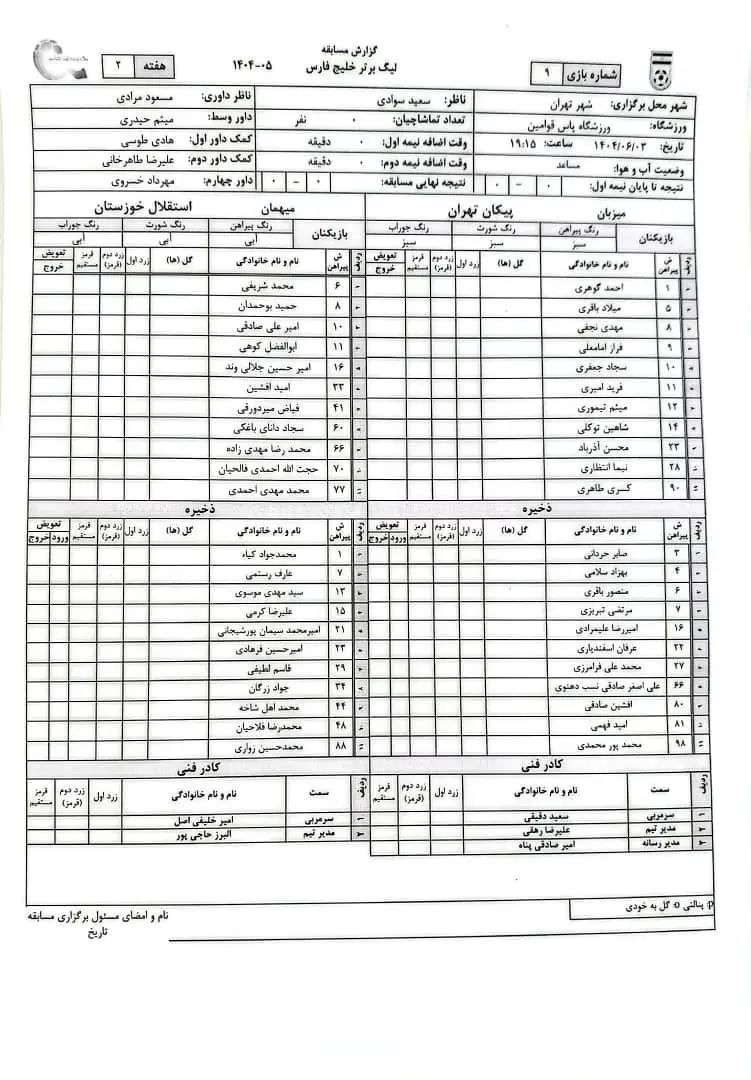 گزارش مسابقه
لیگ برتر خلیج فارس ۰۵-۱۴۰۴
شماره بازی ۹
هفته ۲
شهر محل برگزاری: شهر تهران
ناظر: سعید سوادی
ناظر داوری: مسعود مرادی
ورزشگاه: ورزشگاه پاس قوامین
تعداد تماشاچیان: ۰ نفر
داور وسط: میثم حیدری
تاریخ: ۱۴۰۴/۰۶/۰۳ ساعت: ۱۹:۱۵
وقت اضافه نیمه اول: ۰ دقیقه
کمک داور اول: هادی طوسی
وضعیت آب و هوا: مساعد
وقت اضافه نیمه دوم: ۰ دقیقه
کمک داور دوم: علیرضا طاهرخانی
نتیجه تا پایان نیمه اول: ۰ - ۰
نتیجه نهایی مسابقه: ۰ - ۰
داور چهارم: مهرداد خسروی
میزبان پیکان تهران
بازیکنان رنگ پیراهن رنگ شورت رنگ جوراب
سبز سبز سبز
ردیف ش پیراهن نام و نام خانوادگی گل (ها) زرد اول زرد دوم (قرمز) قرمز مستقیم تعویض خروج
۱ احمد گوهری
۵ میلاد باقری
۸ مهدی نجفی
۹ فراز امامعلی
۱۰ سجاد جعفری
۱۱ فرید امیری
۱۲ میثم تیموری
۱۴ شاهین توکلی
۲۳ محسن آذرباد
۲۸ نیما انتظاری
۹۰ کسری طاهری
ذخیره
ردیف ش پیراهن نام و نام خانوادگی گل (ها) زرد اول زرد دوم (قرمز) قرمز مستقیم تعویض ورود خروج
۳ صابر حردانی
۴ بهزاد سلامی
۶ منصور باقری
۷ مرتضی تبریزی
۱۶ امیررضا علیمرادی
۲۲ عرفان اسفندیاری
۲۷ محمد علی فرامرزی
۶۶ علی اصغر صادقی نسب دهنوی
۸۰ افشین صادقی
۸۱ امید فهمی
۹۸ محمد پور محمدی
کادر فنی
ردیف سمت نام و نام خانوادگی زرد اول زرد دوم (قرمز) قرمز مستقیم
۱ سرمربی سعید دقیقی
۲ مدیر تیم علیرضا رهقی
۳ مدیر رسانه امیر صادقی پناه
میهمان استقلال خوزستان
بازیکنان رنگ پیراهن رنگ شورت رنگ جوراب
آبی آبی آبی
ردیف ش پیراهن نام و نام خانوادگی گل (ها) زرد اول زرد دوم (قرمز) قرمز مستقیم تعویض خروج
۶ محمد شریفی
۸ حمید بوحمدان
۱۰ امیر علی صادقی
۱۱ ابوالفضل کوهی
۱۶ امیر حسین جلالی وند
۳۳ امید افشین
۴۱ فیاض میردورقی
۶۰ سجاد دانای باغکی
۶۶ محمد رضا مهدی زاده
۷۰ حجت الله احمدی فالحیان
۷۷ محمد مهدی احمدی
ذخیره
ردیف ش پیراهن نام و نام خانوادگی گل (ها) زرد اول زرد دوم (قرمز) قرمز مستقیم تعویض ورود خروج
۱ محمدجواد کیاه
۷ عارف رستمی
۱۳ سید مهدی موسوی
۱۵ علیرضا کرمی
۲۱ امیرمحمد سیمان پورشیجانی
۲۳ امیرحسین فرهادی
۲۹ قاسم لطیفی
۳۴ جواد زرگان
۴۴ محمد اهل شاخه
۴۸ محمدرضا فلاحیان
۸۸ محمدحسین زواری
کادر فنی
ردیف سمت نام و نام خانوادگی زرد اول زرد دوم (قرمز) قرمز مستقیم
۱ سرمربی امیر خلیفی اصل
۲ مدیر تیم البرز حاجی پور
p: پنالتی o: گل به خودی
نام و امضای مسئول برگزاری مسابقه
تاریخ